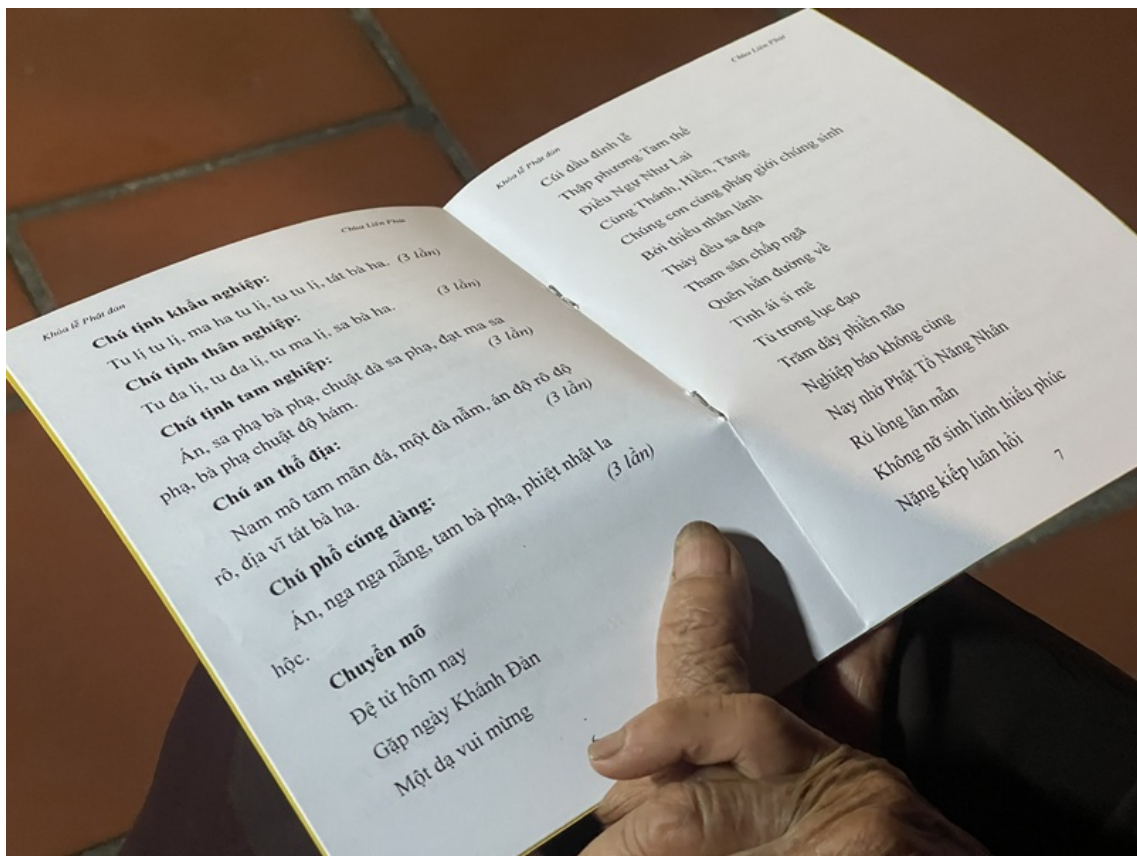 Khóa lễ Phật đản
Chùa Liên Phái
Chú tịnh khẩu nghiệp:
Tu lị tu lị, ma ha tu lị, tu tu lị, tát bà ha. (3 lần)
Chú tịnh thân nghiệp:
(3 lần)
Tu đa lị, tu đa lị, tu ma lị, sa bà ha.
Chú tịnh tam nghiệp:
Án, sa phạ bà phạ, chuật đà sa phạ, đạt ma sa
phạ, bà phạ chuật độ hám.
(3 lần)
Chú an thổ địa:
Nam mô tam mãn đá, một đà nẫm, án độ rô độ
rô, địa vĩ tát bà ha.
(3 lần)
Chú phổ cúng dàng:
Án, nga nga nẵng, tam bà phạ, phiệt nhật la
hộc.
(3 lần)
Chuyển mõ
Đệ tử hôm nay
Gặp ngày Khánh Đản
Một dạ vui mừng
Khóa lễ Phật đản
Chùa Liên Phái
Cúi đầu đỉnh lễ
Thập phương Tam thế
Điều Ngự Như Lai
Cùng Thánh, Hiền, Tăng
Chúng con cùng pháp giới chúng sinh
Bởi thiếu nhân lành
Thảy đều sa đọa
Tham sân chấp ngã
Quên hẳn đường về
Tình ái si mê
Tù trong lục đạo
Trăm dây phiền não
Nghiệp báo không cùng
Nay nhờ Phật Tổ Năng Nhân
Rủ lòng lân mẫn
Không nỡ sinh linh thiếu phúc
Nặng kiếp luân hồi
7